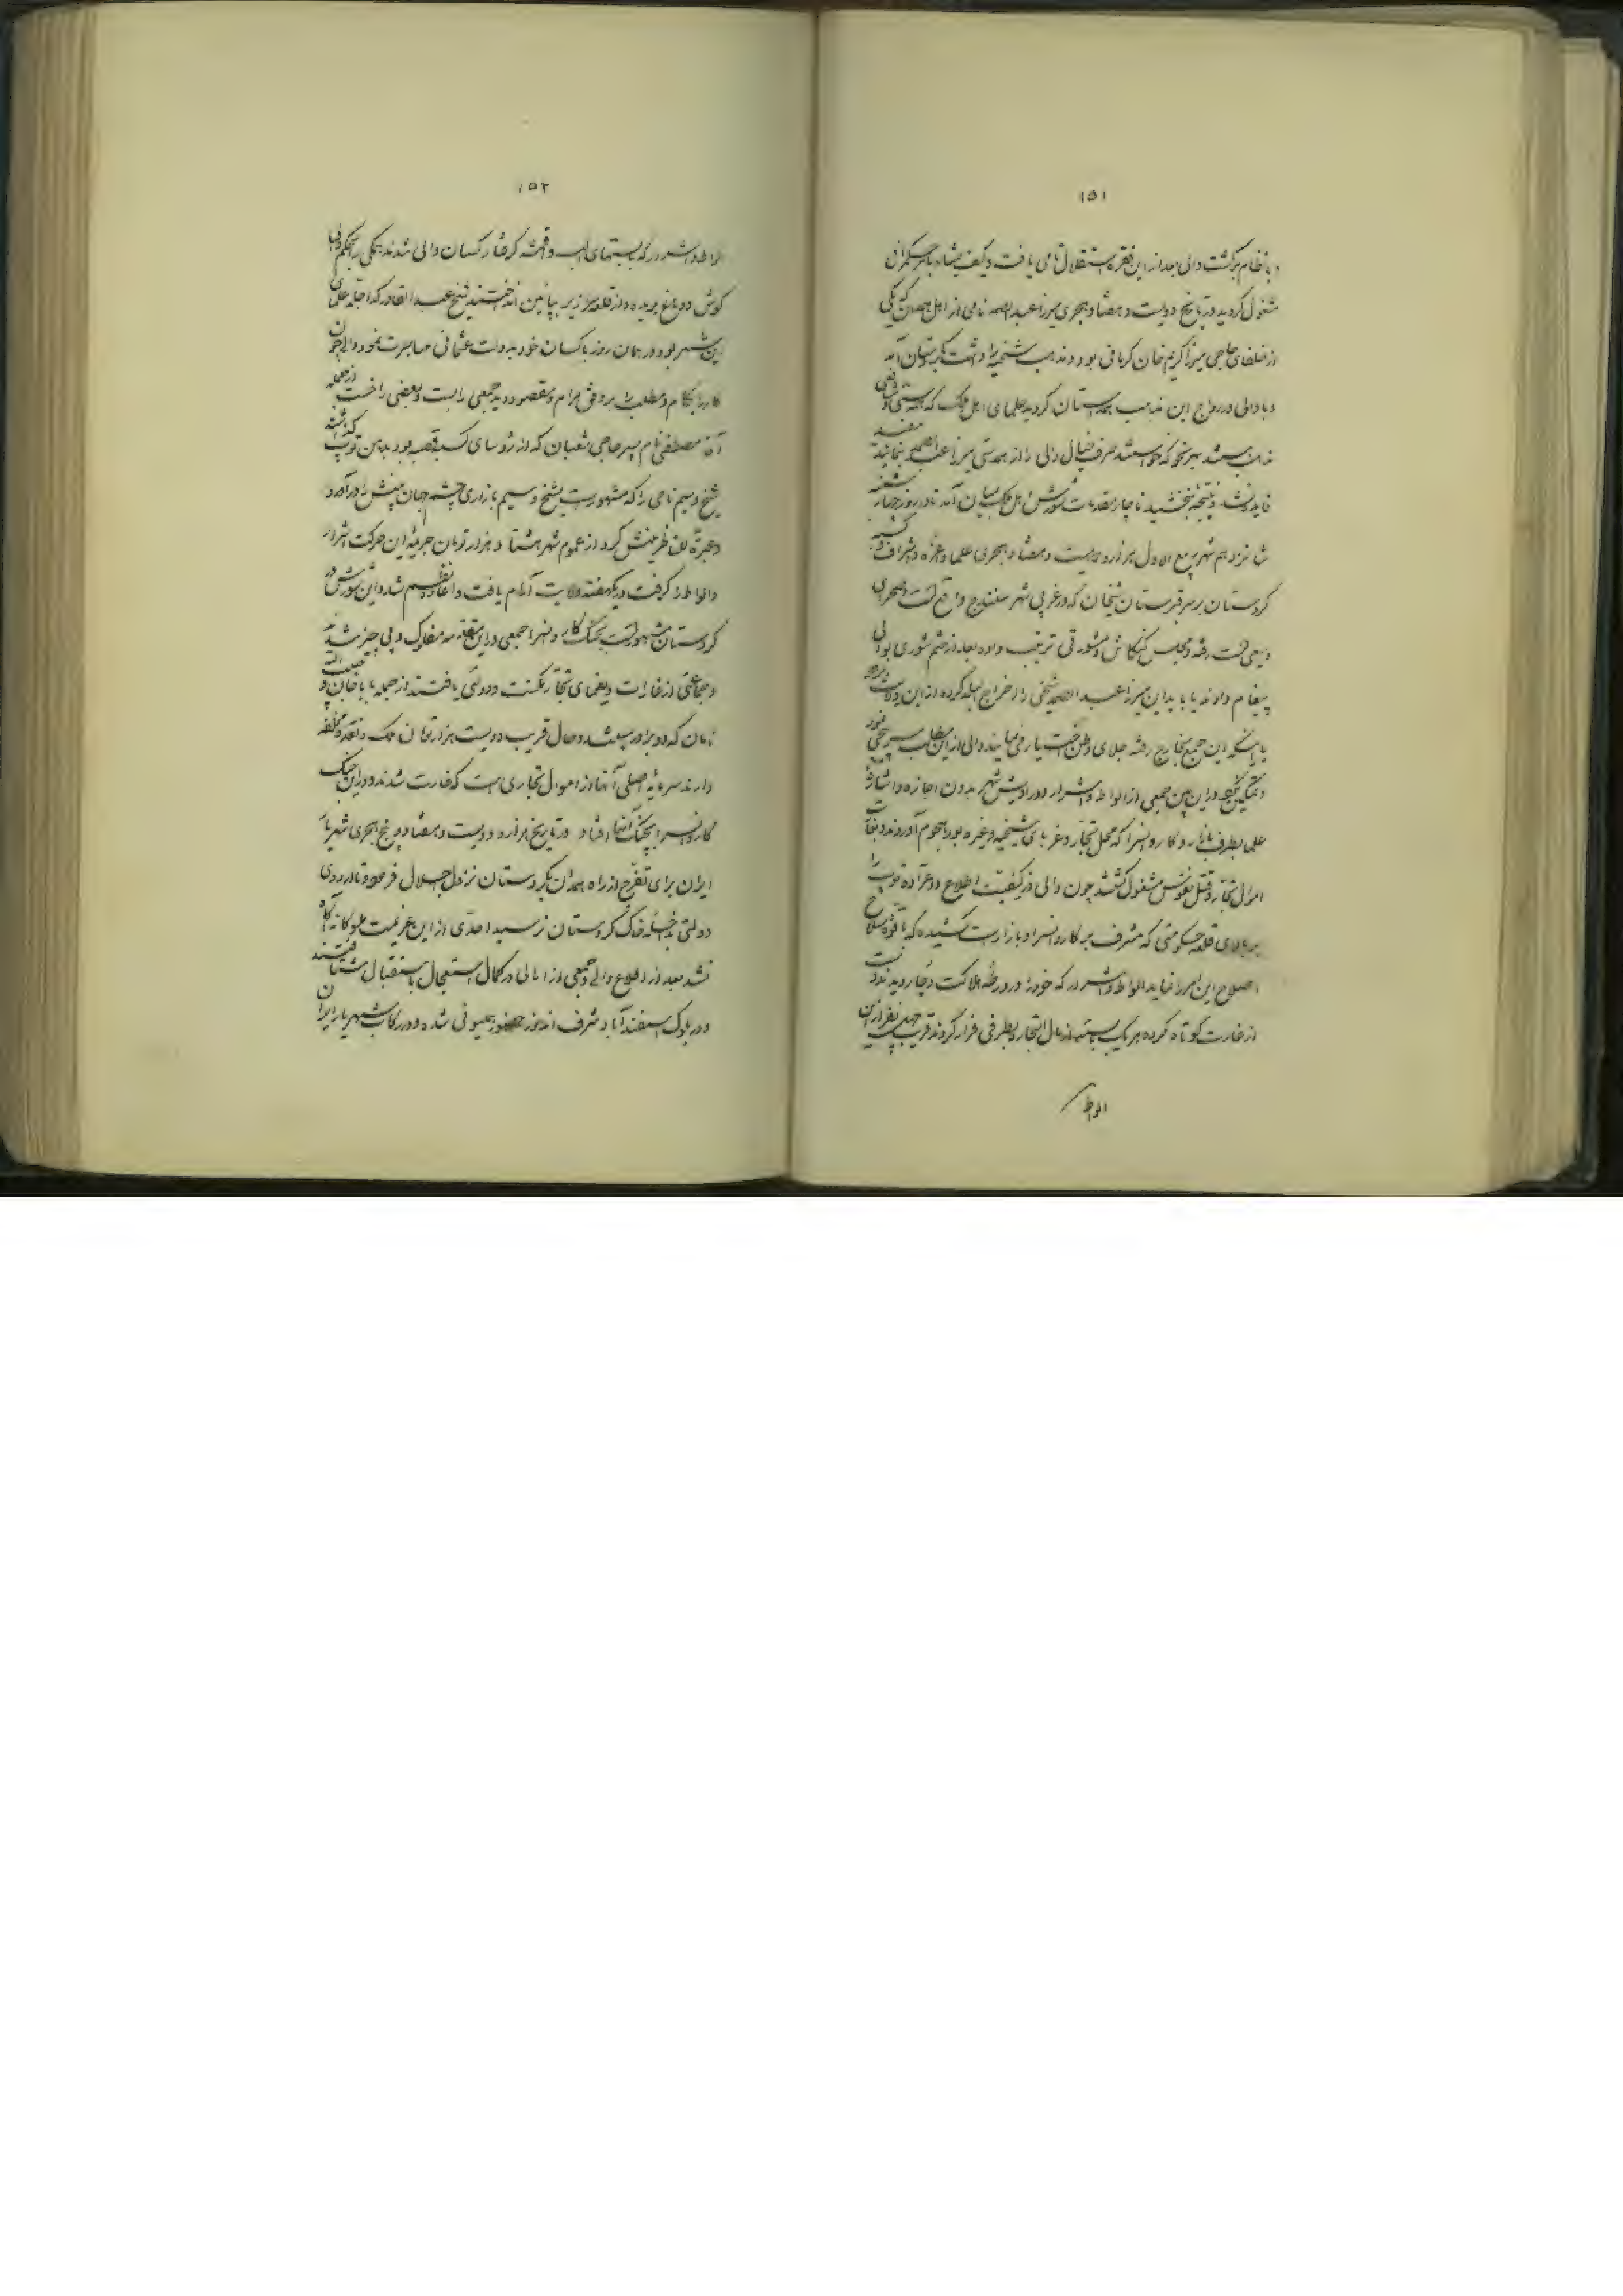 ۱۵۱
با نظام برگشت والی بعد از این فقره استقلال تامی یافت و بکف بامر حکمرانی
مشغول گردید در تاریخ دویست و هشتاد هجری میرزا عبدالصمد نامی از اهل همدان که یکی
از خلفای حاجی میرزا کریم خان کرمانی بود و مذهب شیخیه را داشت بکردستان آمد
و با والی در رواج این مذهب همدستان گردید علمای اهل ملک که همه سنی و شافعی
مذهب هستند بهر نحو که خواستند صرف خیال والی را از همدستی میرزا عبدالصمد بنمایند مفید
فایده نشد و نتیجه نبخشید ناچار مقدمات شورش اهل ملک بمیان آمد تا در روز چهارشنبه
شانزدهم شهر ربیع الاول هزار و دویست و هشتاد هجری علما و اعزه و اشراف و کسبه
کردستان بر سر قبرستان شیخان که در غربی شهر سنندج واقع است و صحرای
وسیعی است رفته و مجلس کنکاش و مشورتی ترتیب داده بعد از ختم شوری بوالی
پیغام دادند یا باید این میرزا عبدالصمد شیخی را اخراج البلد کرده از این ولایت برود
یا اینکه این جمع بخارج رفته جلای وطن اختیار می‌نمایند والی از این مطلب سرپیچی نمود
و تمکین نکرد در این بین جمعی از الواط و اشرار و دراویش شهر بدون اجازه و اشاره
علما بطرف بازار و کاروانسرا که محل تجار و غربای شیخیه و غیره بود هجوم آوردند و بغارت
اموال تجار و قتل نفوس مشغول گشتند چون والی از کیفیت اطلاع دو عراده توپ را
بر بالای قلعه حکومتی که مشرف بر کاروانسرا و بازار است کشیده که با قوه سلاح
اصلاح این امر را نماید الواط و اشرار که خود را در ورطه هلاکت دچار دیدند دست
از غارت کوتاه کرده هر یک بسته از مال التجار بطرفی فرار کردند قریب چهل نفر از این
الواط
۱۵۲
الواط و اشرار که با بستهای اسباب و اقمشه گرفتار کسان والی شدند همگی را بحکم والی
گوش و دماغ بریده و از قلعه بزیر پائین انداختند شیخ عبدالقادر که اجله علمای
این شهر بود در همان روز با کسان خود بدولت عثمانی مهاجرت نمود والی چون
کار را بکام و مطلب را بر وفق مرام و مقصود دید جمعی را بست و بعضی را خست از جمله
آقا مصطفی نام پسر حاجی شعبان که از رؤسای کسبه قصبه بود بدهن توپ گذاشتند
شیخ وسیم نامی را که مشهور است بشیخ وسیم بازاری چشم جهان بینش را درآورد
و عبرة للناظرینش کرد از عموم شهر هشتاد هزار تومان جریمه این حرکت اشرار
و الواط را گرفت در یک هفته ولایت آرام یافت و اعاده نظم شد و این شورش در
کردستان مشهور است بجنگ کاروانسرا جمعی در این مقدمه مفلوک و بی چیز شدند
و جماعتی از غارت و یغمای تجار مکنت و دولتی یافتند از جمله باباخان و حبیب الله
نامان که دو برادر میباشند و حال قریب دویست هزار تومان ملک و نقد و مخلفه
دارند سرمایه اصلی آنها از اموال تجاری است که غارت شدند و در این جنگ
کاروانسرا بچنگ آنها افتاد در تاریخ هزار و دویست و هشتاد و پنج هجری شهریار
ایران برای تفرج از راه همدان بکردستان نزول اجلال فرمود و تا اردوی
دولتی داخله خاک کردستان نرسید احدی از این عزیمت ملوکانه آگاه
نشد بعد از اطلاع والی و جمعی از اهالی در کمال استعجال باستقبال شتافتند
و در بلوک اسفندآباد شرف اندوز حضور همیونی شده و در رکاب شهریار ایران